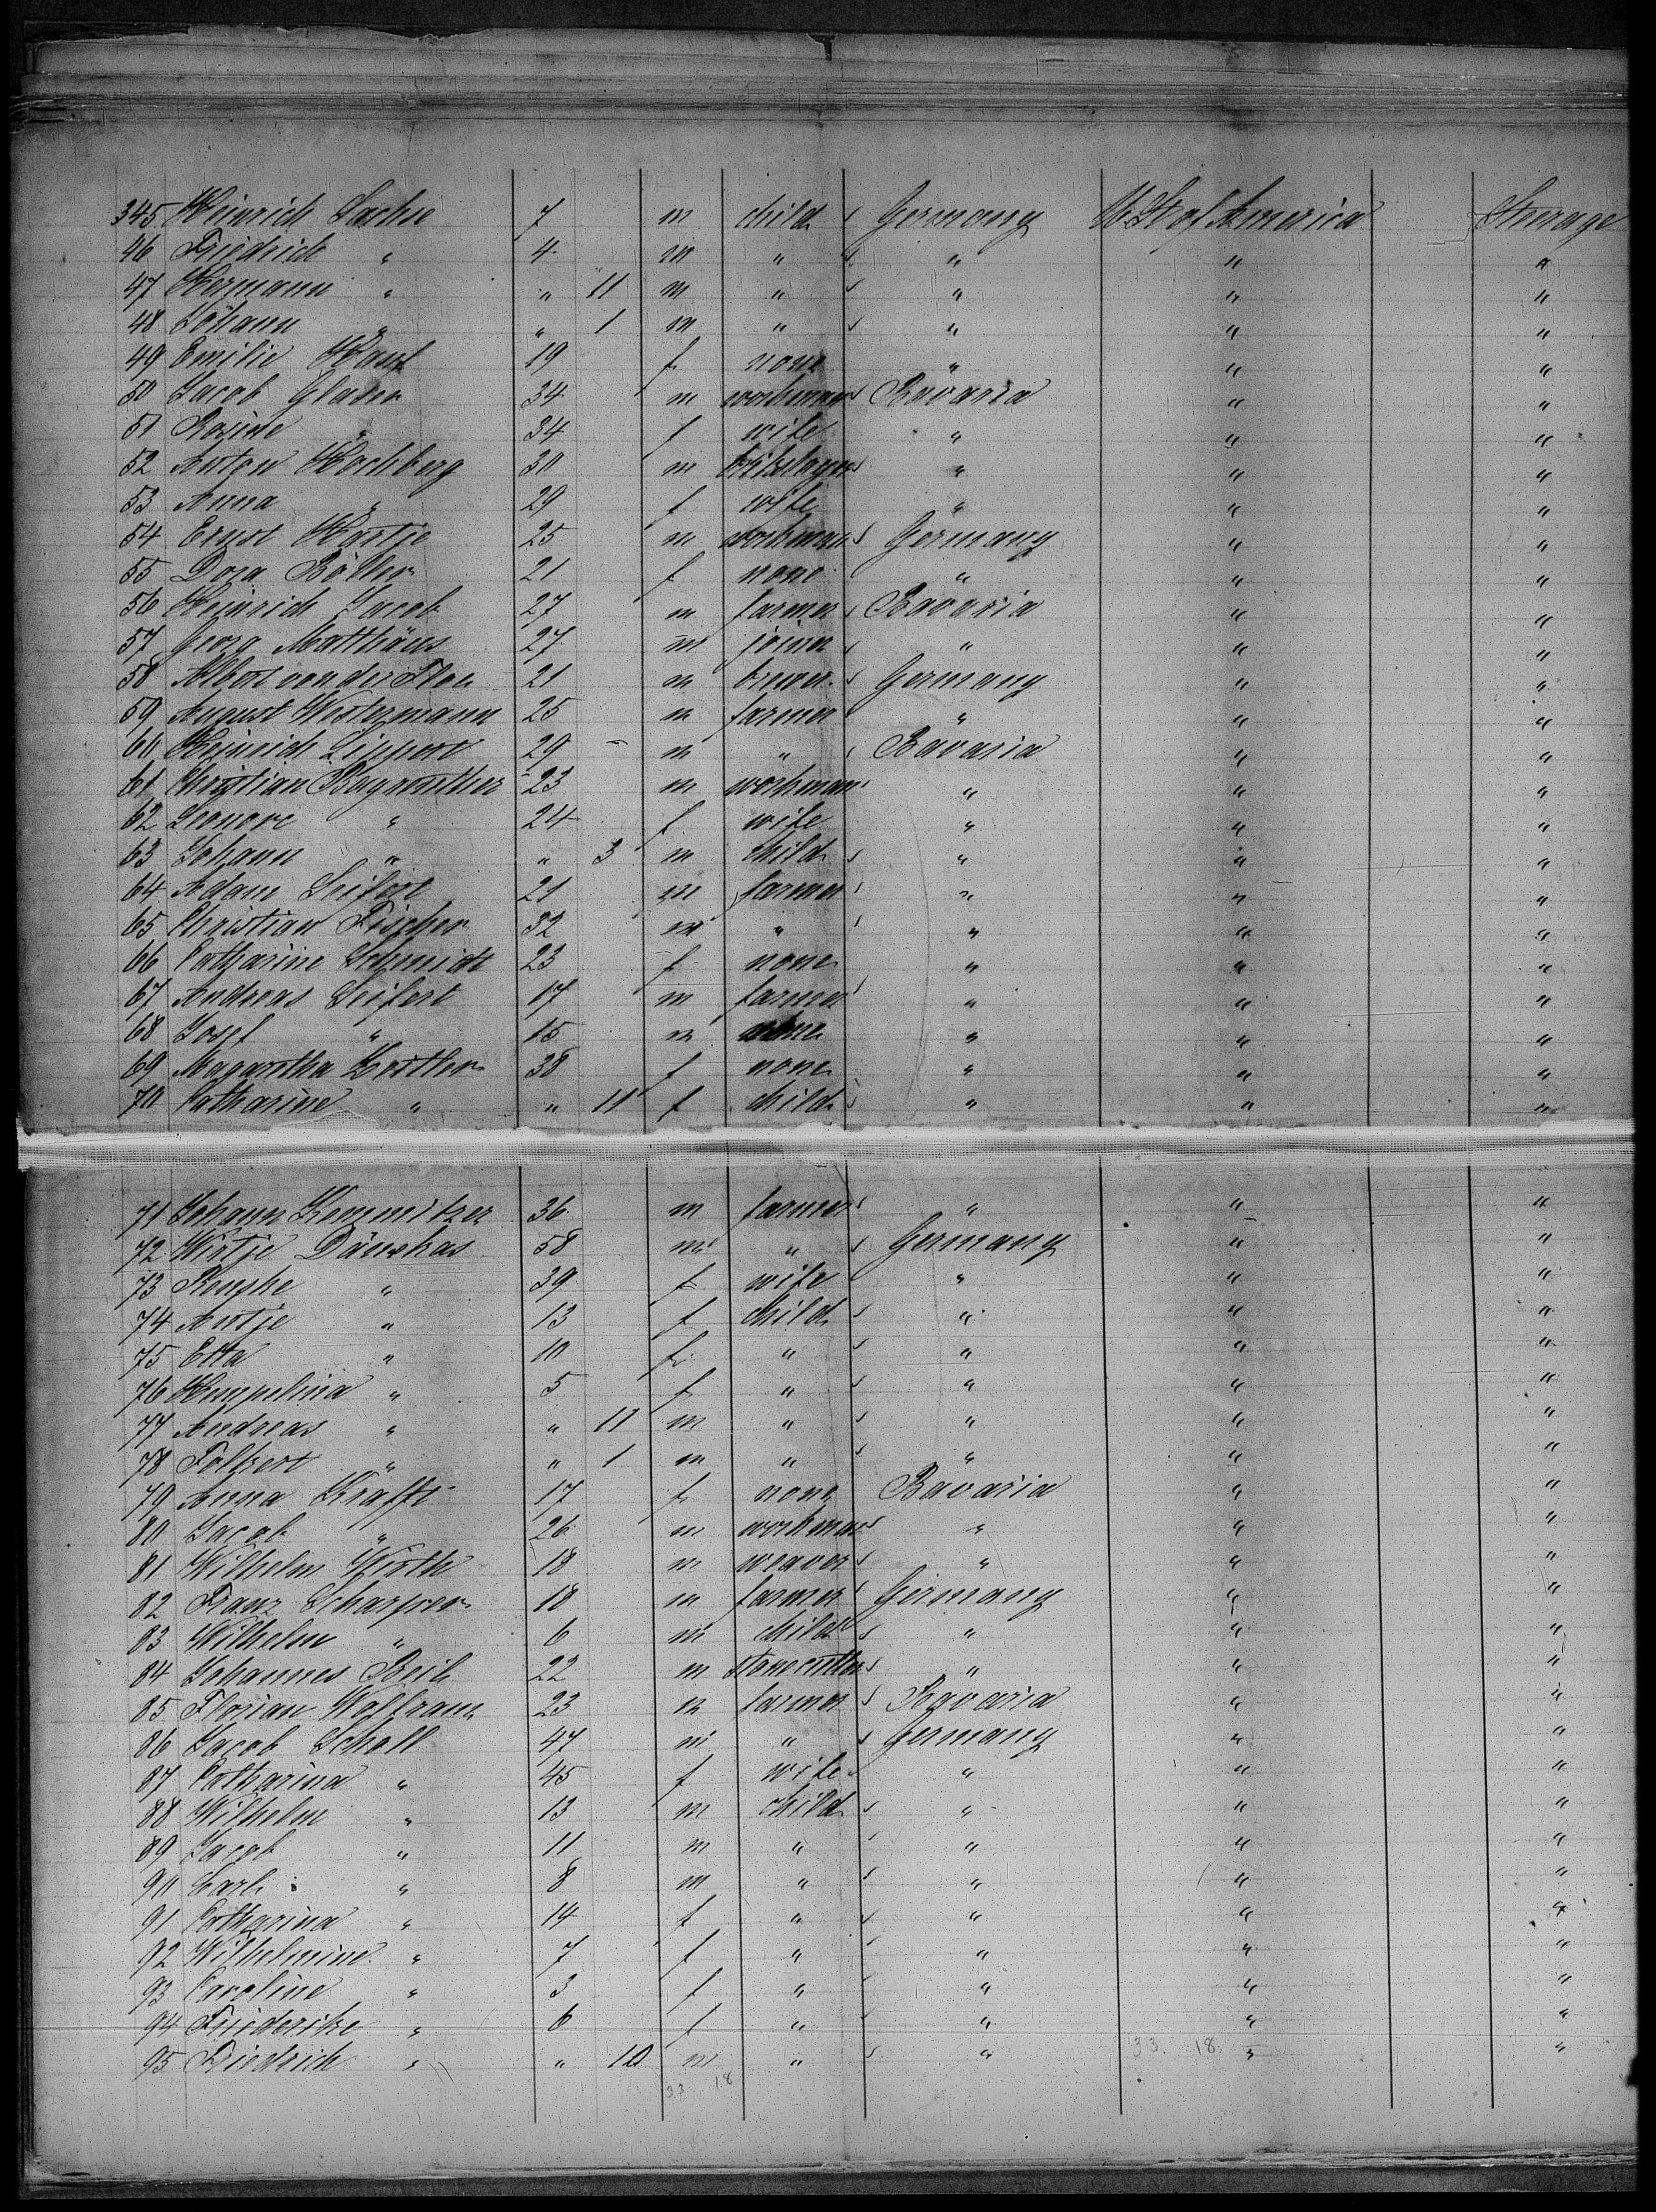 345 Heinrich Sachse 7 m child Germany U. St. of America Steerage
46 Friedrich " 4 m " " " "
47 Hermann " " 11 m " " " "
48 Johann " " 1 m " " " "
49 Emilie Hanf 19 f none " " "
50 Jacob Glaser 34 m workman Bavaria " "
51 Rosine " 34 f wife " " "
52 Anton Hochberg 30 m " " "
53 Anna " 29 f wife " " "
54 Ernst Hartje 25 m workman Germany " "
55 Dora 21 f none " " "
56 Heinrich Jacob 27 m farmer Bavaria " "
57 Georg Matthäus 27 m joiner " " "
58 Albert von der 21 m brewer Germany " "
59 August Westermann 25 m farmer " " "
60 Heinrich Lippert 29 m " Bavaria " "
61 Christian 23 m workman " " "
62 Leonore " 24 f wife " " "
63 Johann " " 3 m child " " "
64 Adam Seifert 21 m farmer " " "
65 Christian Fischer 32 m " " " "
66 Catharine Schmidt 23 f none " " "
67 Andreas Seifert 17 m farmer " " "
68 Josef " 15 m " " "
69 Magaretha 38 f none " " "
70 Catharine " " 11 f child " " "
71 Johann Kemmitzer 36 m farmer " " "
72 Wirtje 58 m " Germany " "
73 Renske " 39 f wife " " "
74 Antje " 13 f child " " "
75 Etta " 10 f " " " "
76 Hempelina " 5 f " " " "
77 Andreas " " 11 m " " " "
78 Folkert " " 1 m " " " "
79 Anna Krafft 17 f none Bavaria " "
80 Jacob " 26 m workman " " "
81 Wilhelm Wirth 18 m weaver " " "
82 Franz 18 m farmer Germany " "
83 Wilhelm " 6 m child " " "
84 Johannes Beik 22 m stonecutter " " "
85 Florian Wolfram 23 m farmer Bavaria " "
86 Jacob Scholl 47 m " Germany " "
87 Catharina " 45 f wife " " "
88 Wilhelm " 13 m child " " "
89 Jacob " 11 m " " " "
90 Carl " 8 m " " " "
91 Catharina " 14 f " " " "
92 Wilhelmine " 7 f " " " "
93 Caroline " 3 f " " " "
94 Friederike " 6 f " " " "
95 Friedrich " " 10 m " " 33. 18 " "
33 18